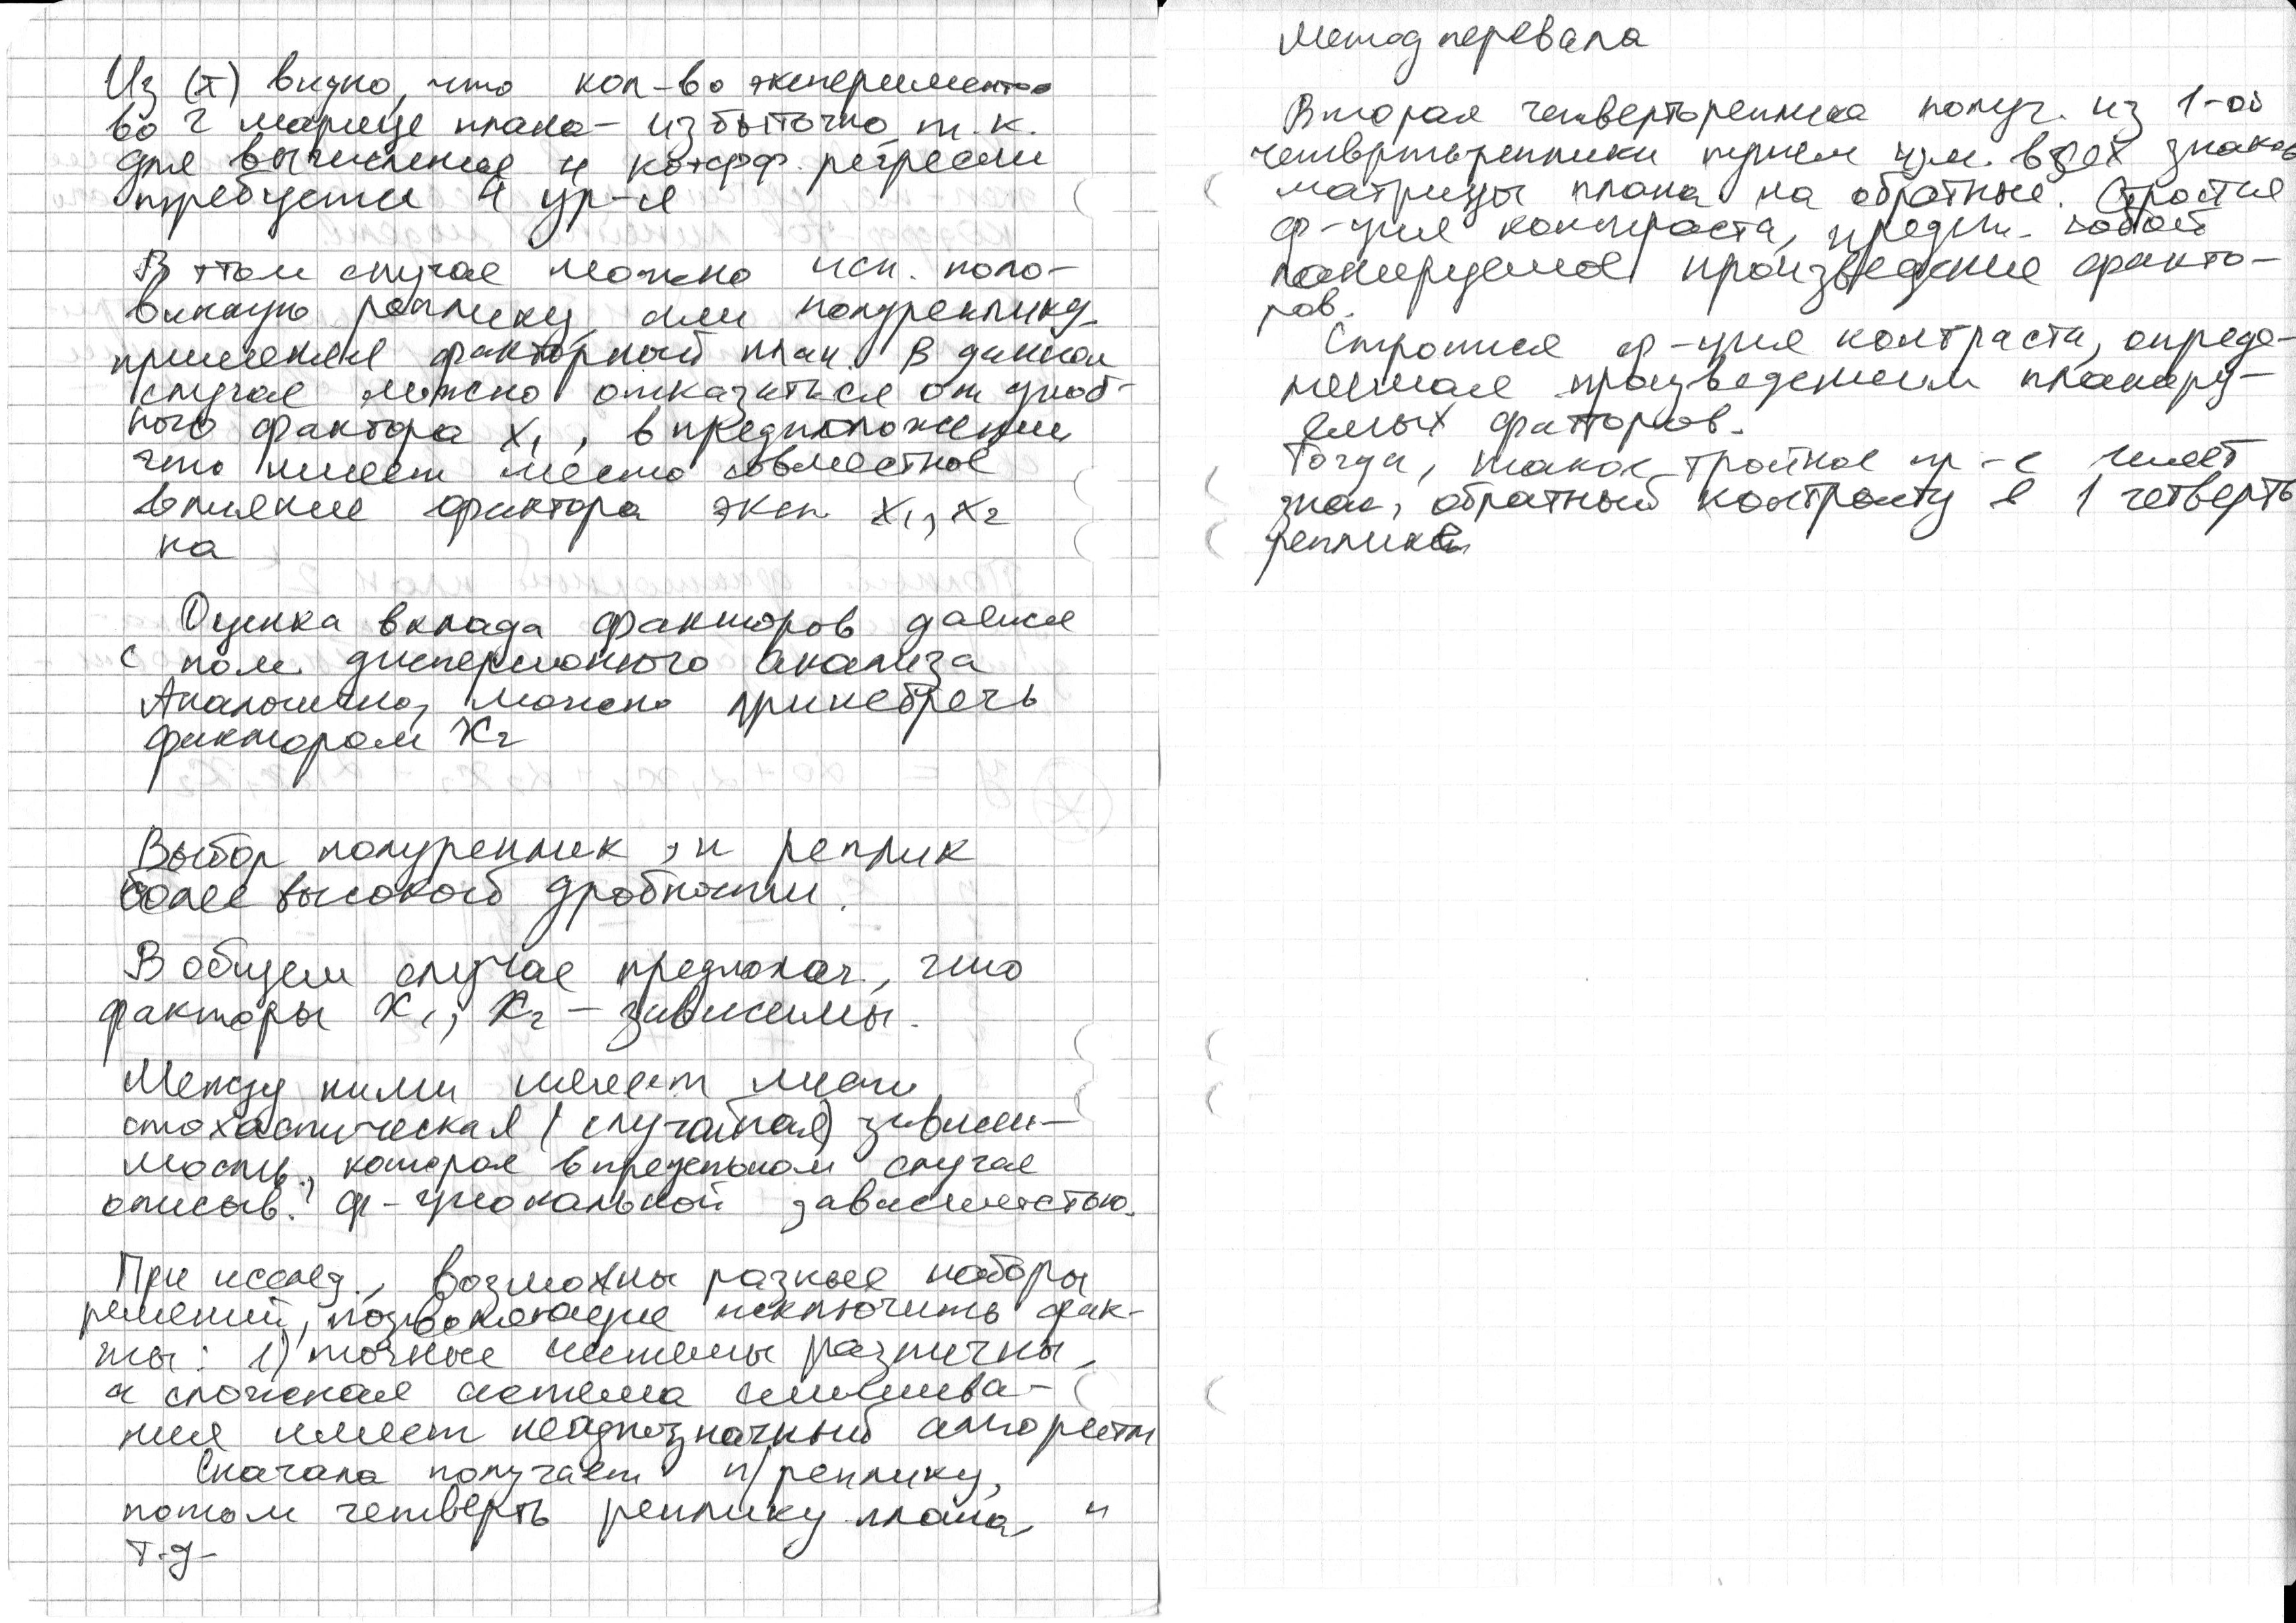 Из (x) видно, что кол-во экспериментов
во 2 марице плана - избыточно, т.к.
для вычисления 4 коэфф. регрессии
требуется 4 ур-я
В этом случае можно исп. поло-
винную реплику, или полуреплику,
применяя факторный план. В данном
случае можно отказаться от
ного фактора x1, в предположении
что имеет место совместное
влияние фактора эксп x1, x2
на
Оценка вклада факторов дается
с пом. дисперсионного анализа
Аналогично, можно принебречь
фактором x2
Выбор полуреплик, и реплик
более высокой дробности.
В общем случае предполаг., что
факторы x1, x2 - зависимы.
Между ними имеет место
стохастическая (случайная) зависи-
мость, которая в предельном случае
описыв. ф-циональной зависимостью.
При исслед., возможны разные наборы
решений, позволяющие исключить фак-
ты: 1) точные системы различны,
и сложная система смешива-
ния имеет неоднозначный алгоритм
Сначала получаем п/реплику,
потом четверть реплику плана, и
т.д.
Метод перевала
Вторая четвертьреплика получ. из 1-ой
четвертьреплики путем изм. всех знаков
матрицы плана на обратные. Строится
ф-ция контраста, предст. собой
планируемое произведение факто-
ров.
Строится ф-ция контраста, опреде-
ляемая произведением планиру-
емых факторов.
Тогда, такое тройное пр-е имеет
знак, обратный контрасту в 1 четверть
реплике